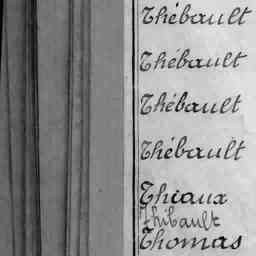 Thébault
Thébault
Thébault
Thébault
Thiaux
Thibault
Thomas